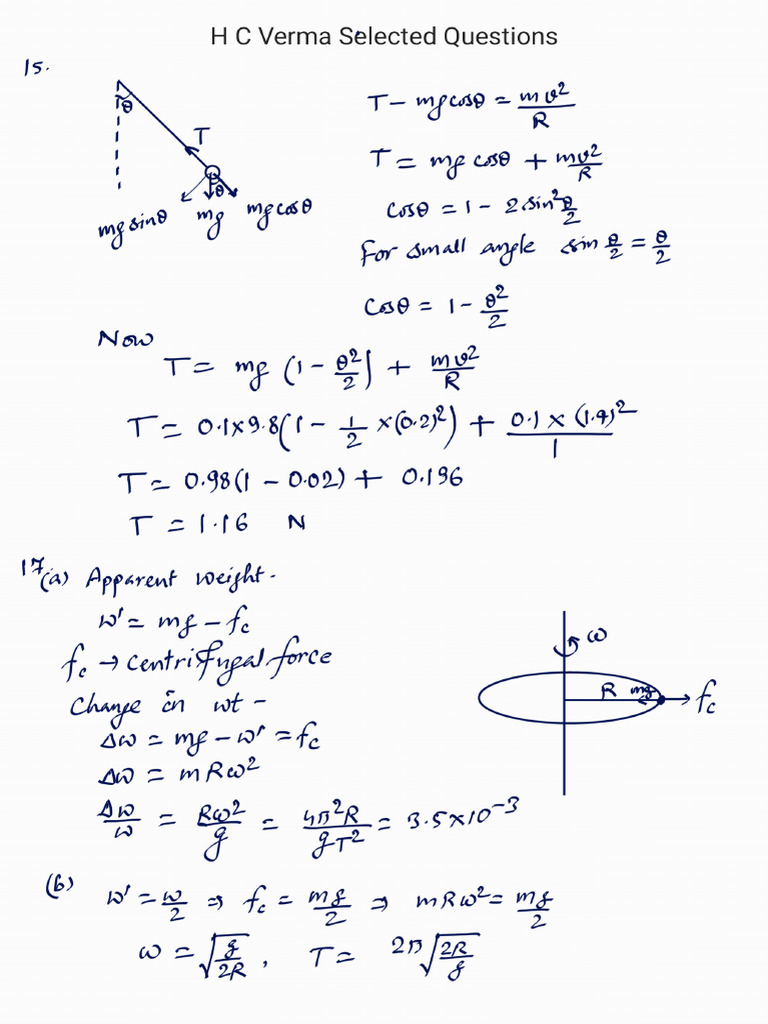 H C Verma Selected Questions
15.
θ
T
θ
mg sinθ mg mg cosθ
T - mg cosθ = mv²/R
T = mg cosθ + mv²/R
cosθ = 1 - 2 sin² θ/2
for small angle sin θ/2 = θ/2
cosθ = 1 - θ²/2
Now
T = mg (1 - θ²/2) + mv²/R
T = 0.1×9.8(1 - 1/2 ×(0.2)²) + 0.1 × (1.4)²/1
T = 0.98(1 - 0.02) + 0.196
T = 1.16 N
17(a) Apparent weight.
w' = mg - fc
fc → centrifugal force
change in wt -
Δw = mg - w' = fc
Δw = mRω²
Δw/w = Rω²/g = 4π²R/gT² = 3.5×10⁻³
ω
R mg fc
(b) w' = w/2 ⇒ fc = mg/2 ⇒ mRω² = mg/2
ω = √g/2R, T = 2π√2R/g